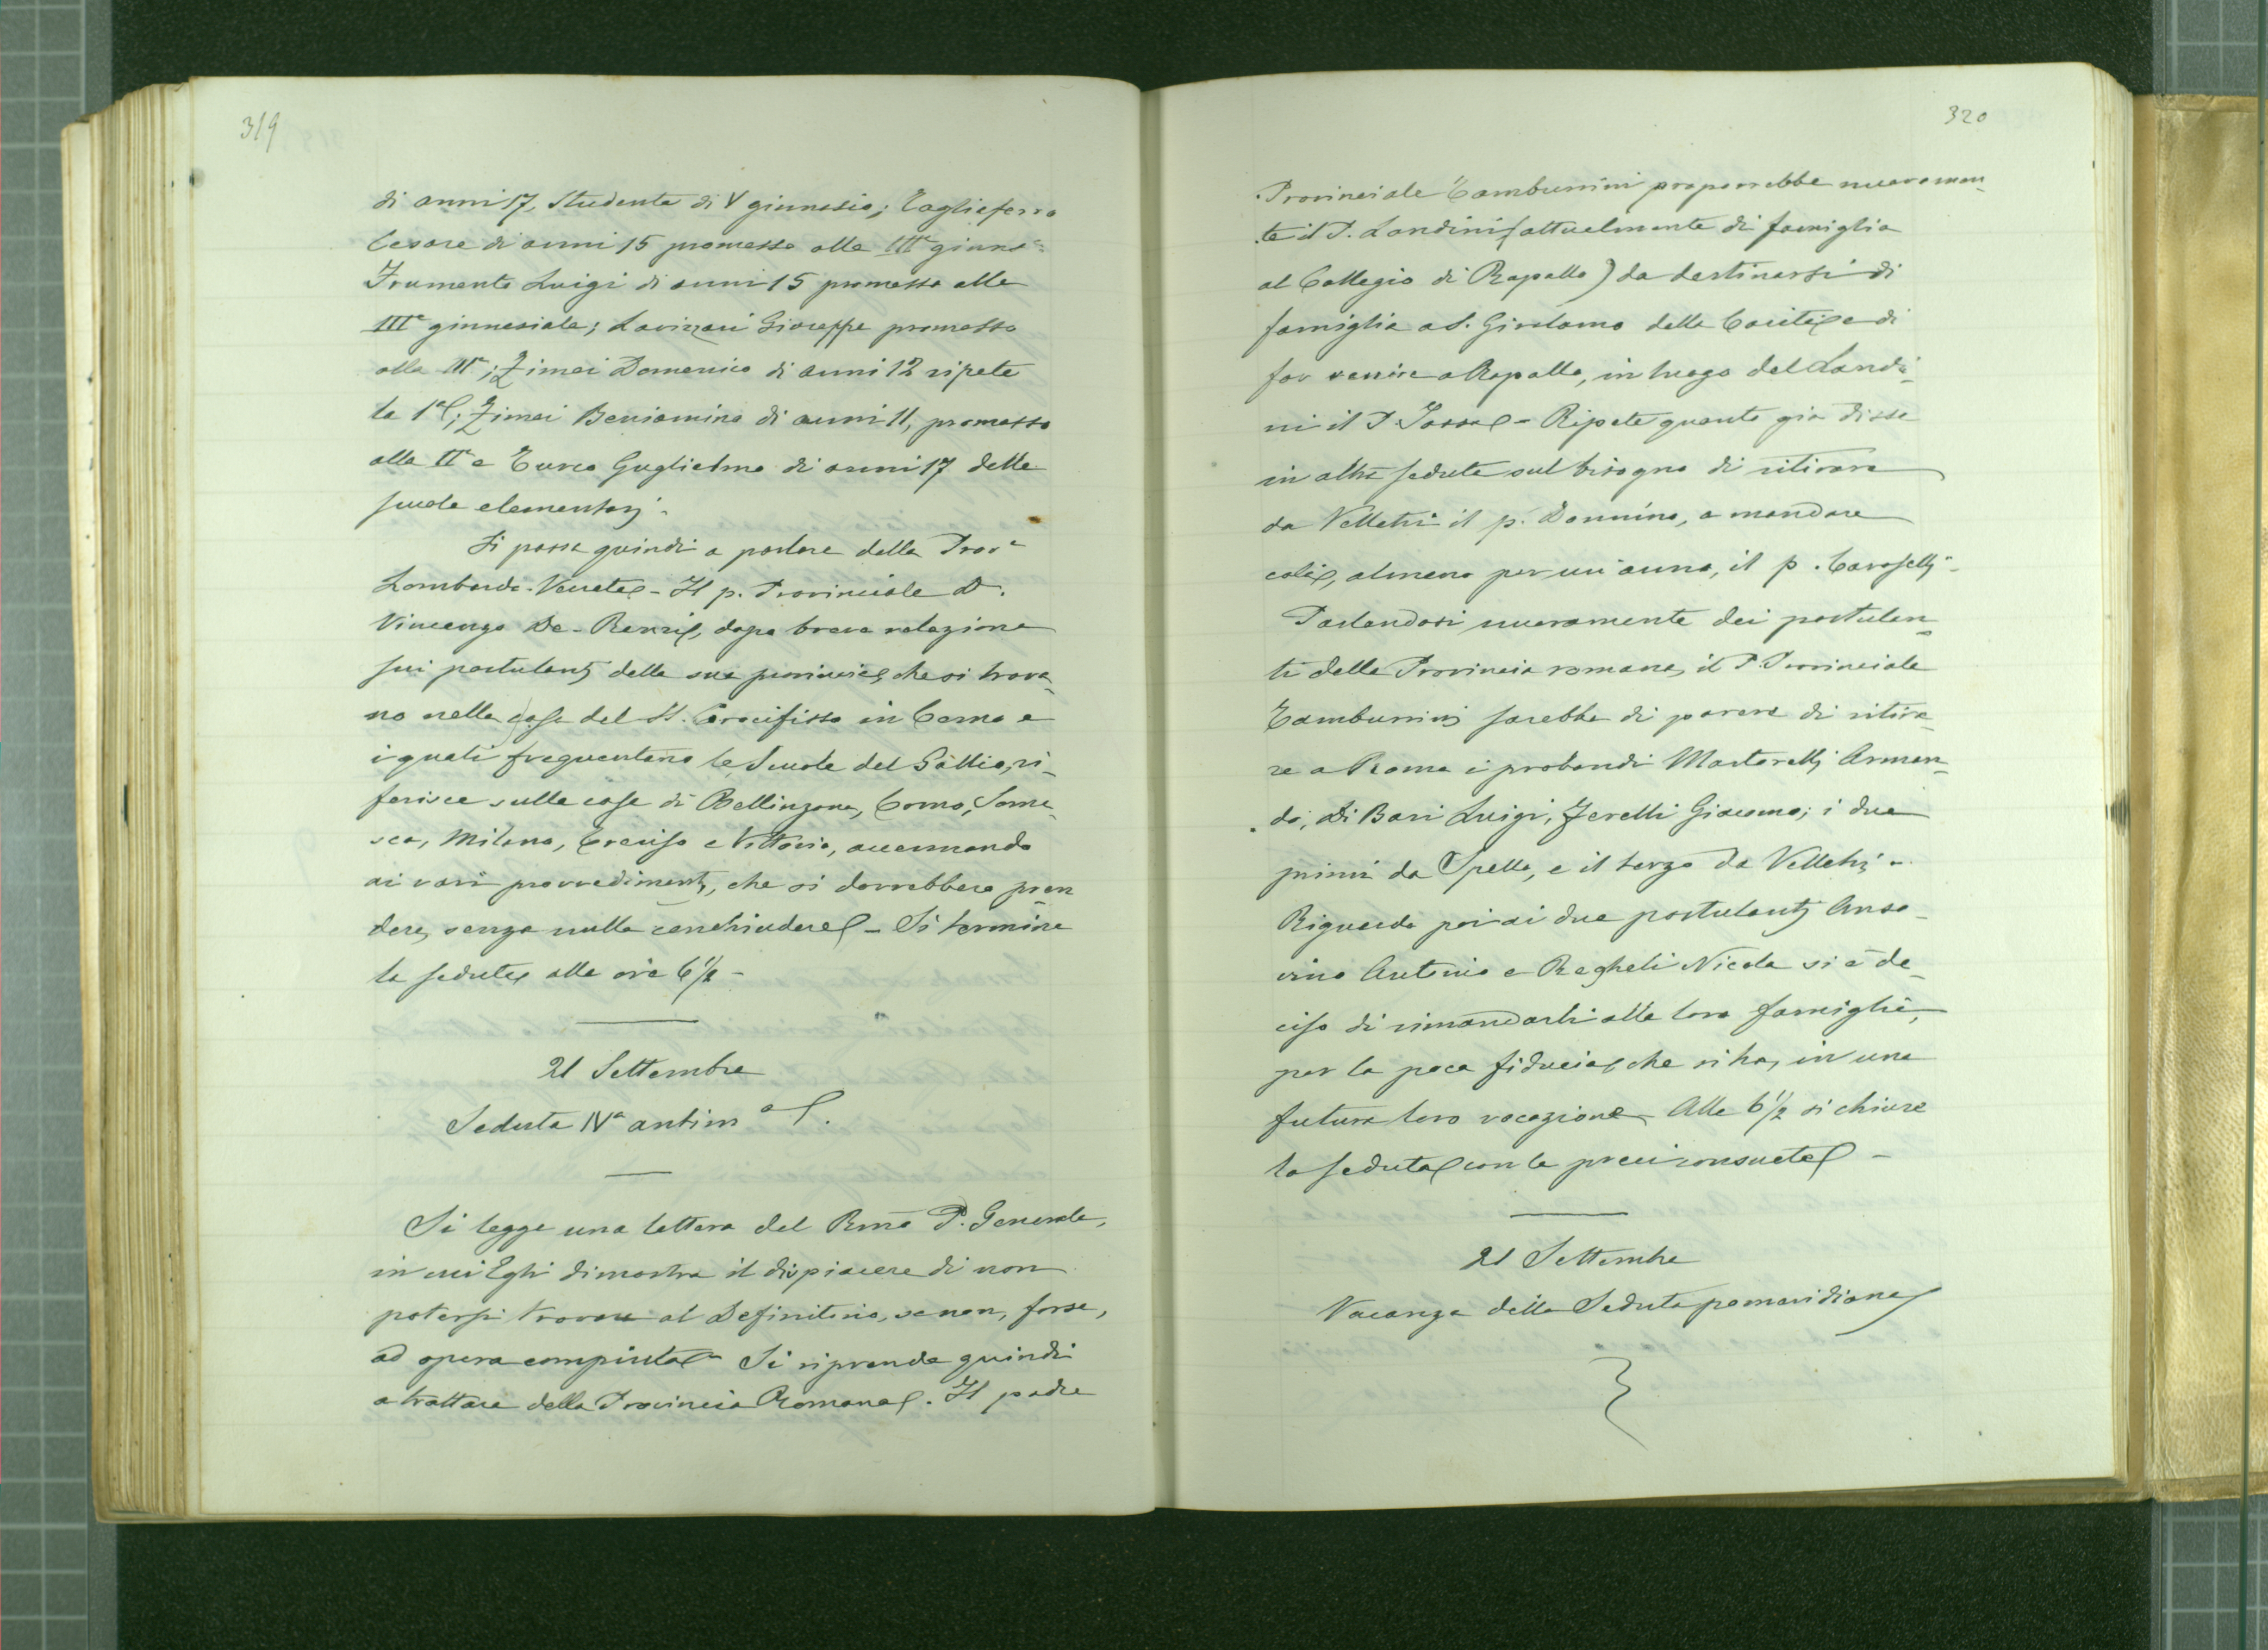 319
di anni 17, studente di V ginnasio; Tagliaferro
Cesare di anni 15 promosso alla IIIª ginnaˢ
Frumento Luigi di anni 15 promosso alla
IIIª ginnasiale; Lavizzari Giuseppe promosso
alla IIIª; Zimei Domenico di anni 12 ripete
la 1ª; Zimei Beniamino di anni 11, promosso
alla IIª e Turco Guglielmo di anni 17 delle
scuole elementari.
Si passa quindi a parlare della Provª
Lombardo-Veneta - Il p. Provinciale D.
Vincenzo De-Renzis, dopo breve relazione
sui postulanti della sua provincia, che si trova-
no nella casa del SS. Crocifisso in Como e
i quali frequentano le Scuole del Gallio, ri-
ferisce sulle case di Bellinzona, Como, Soma-
sca, Milano, Treviso e Vittorio, accennando
ai varî provvedimenti, che si dovrebbero pren
dere, senza nulla conchiudere - Si termina
la seduta alle ore 6 1/2 -
21 Settembre
Seduta IVª antimª.
Si legge una lettera del Rmo P. Generale,
in cui Egli dimostra il dispiacere di non
potersi trovare al Definitorio, se non, forse,
ad opera compiuta - Si riprende quindi
a trattare della Provincia Romana. Il padre
320
Provinciale Tamburrini proporrebbe nuovamen-
te il P. Landini (attualmente di famiglia
al Collegio di Rapallo) da destinarsi di
famiglia a S. Girolamo della Carità e di
far venire a Rapallo, in luogo del Landi-
ni il P. - Ripete quanto già disse
in altra seduta sul bisogno di ritirare
da Velletri il p. Donnino, e mandare
colà, almeno per un anno, il p. Caroselli -
Parlandosi nuovamente dei postulan-
ti della Provincia romana, il P. Provinciale
Tamburrini sarebbe di parere di ritira-
re a Roma i probandi Martorelli Arman-
do, Di Bari Luigi, Ferelli Giacomo; i due
primi da Spello, e il terzo da Velletri -
Riguardo poi ai due postulanti Anso-
vino Antonio e Ragheli Nicola si è de-
ciso di rimandarli alle loro famiglie,
per la poca fiducia, che si ha, in una
futura loro vocazione. Alle 6 1/2 si chiuse
la seduta con le preci consuete -
21 Settembre
Vacanza della Seduta pomeridiana